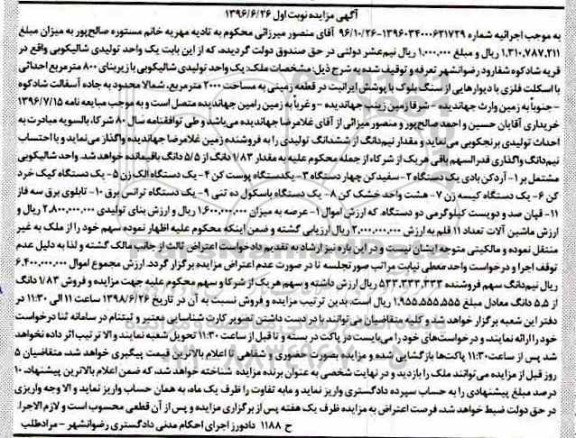 آگهی مزایده نوبت اول ۱۳۹۶/۶/۲۶
به موجب اجرائیه شماره ۱۳۹۶۰۳۴۰۰۰۶۲۱۷۲۹-۹۶/۱۰/۲۶ آقای منصور میرزائی محکوم به تادیه مهریه خانم مستوره صالح‌پور به میزان مبلغ
۱,۳۱۰,۷۸۷,۲۱۱ ریال و مبلغ ۱,۰۰۰,۰۰۰ ریال نیم‌عشر دولتی در حق صندوق دولت گردیده، که از این بابت یک واحد تولیدی شالیکوبی واقع در
قریه شادکوه شفارود رضوانشهر تعرفه و توقیف شده به شرح ذیل: مشخصات ملک: یک واحد تولیدی شالیکوبی با زیربنای ۸۰۰ مترمربع احداثی
با اسکلت فلزی با دیوارهایی از سنگ بلوک با پوشش ایرانیت در قطعه زمینی به مساحت ۲۰۰۰ مترمربع، شمالا محدود به جاده آسفالت شادکوه
- جنوباً به زمین وراث جهاندیده - شرقا زمین زینب جهاندیده - و غرباً به زمین رامین جهاندیده متصل است و به موجب مبایعه نامه ۱۳۹۶/۷/۱۵
خریداری آقایان حسین و احمد صالح‌پور و منصور میرزائی از آقای غلامرضا جهاندیده می‌باشد و طی توافقنامه سال ۸۰ شرکا، بالسویه مبادرت به
احداث تولیدی برنجکوبی می‌نماید و مقدار نیم‌دانگ از ششدانگ تولیدی را به فروشنده زمین غلامرضا جهاندیده واگذار می‌نماید و با احتساب
نیم‌دانگ واگذاری قدرالسهم باقی هریک از شرکاء از جمله محکوم علیه به مقدار ۱/۸۳ دانگ از ۵/۵ دانگ باقیمانده خواهد شد. واحد شالیکوبی
مشتمل بر ۱- آردکن بادی یک دستگاه ۲- سفیدکن چهار دستگاه ۳- یکدستگاه پوست کن ۴- یک دستگاه الک زن ۵- یک دستگاه کیک خرد
کن ۶- یک دستگاه کیسه زن ۷- هشت واحد خشک کن ۸- یک دستگاه باسکول ده تنی ۹- یک دستگاه ترانس برق ۱۰- تابلوی برق سه فاز
۱۱- قپان صد و دویست کیلوگرمی دو دستگاه، که ارزش اموال ۱- عرصه به میزان ۱,۶۰۰,۰۰۰,۰۰۰ ریال و ارزش بنای تولیدی ۲,۸۰۰,۰۰۰,۰۰۰ ریال و
ارزش ماشین آلات تعداد ۱۱ قلم به ارزش ۲,۰۰۰,۰۰۰,۰۰۰ ریال ارزیابی گشته و ضمن اینکه محکوم علیه اظهار نموده سهم خود را از ملک به غیر
منتقل نموده و مالکیتی متوجه ایشان نیست و در این باره نیز ارشاد به تقدیم دادخواست اعتراض ثالث از جانب مالک گشته و لذا به دلیل عدم
توقف اجرا و درخواست واحد معطی نیابت مراتب صورتجلسه تا در صورت عدم اعتراض مزایده برگزار گردد. ارزش مجموع اموال ۶,۴۰۰,۰۰۰,۰۰۰
ریال نیم‌دانگ سهم فروشنده ۵۳۳,۳۳۳,۳۳۳ ریال ارزش داشته و سهم هریک از شرکا و سهم محکوم علیه جهت مزایده و فروش ۱/۸۳ دانگ
از ۵.۵ دانگ معادل مبلغ ۱,۹۵۵,۵۵۵,۵۵۵ ریال است، بدین ترتیب مزایده و فروش نسبت به آن در تاریخ ۱۳۹۸/۶/۲۶ ساعت ۱۱ الی ۱۱:۳۰ در
دفتر این شعبه برگزار خواهد شد و کلیه متقاضیان می‌توانند با در دست داشتن تصویر کارت شناسایی معتبر و ثبت‌نام در سامانه ثنا درخواست
خود را ارائه نمایند، و درخواست‌های خود را می‌بایست در پاکت در بسته و تا قبل از ساعت ۱۱:۳۰ تحویل شعبه نمایند و الا ترتیب اثر داده نخواهد
شد. پس از ساعت ۱۱:۳۰ پاکت‌ها بازگشایی شده و مزایده بصورت حضوری و شفاهی تا اعلام بالاترین قیمت پیگیری خواهد شد، متقاضیان ۵
روز قبل از مزایده می‌توانند ملک را بازدید و در نهایت شخصی به عنوان برنده مزایده شناخته خواهد شد، که ضمن اعلام بالاترین پیشنهاد، ۱۰
درصد مبلغ پیشنهادی را به حساب سپرده دادگستری واریز نماید و مابه تفاوت را ظرف یک ماه، به همان حساب واریز نماید و الا وجه واریزی
در حق دولت ضبط خواهد شد. فرصت اعتراض به مزایده ظرف یک هفته پس از برگزاری مزایده و پس از آن قطعی محسوب است و لازم الاجرا.
ح ۱۱۸۸ دادورز اجرای احکام مدنی دادگستری رضوانشهر - مرادطلب